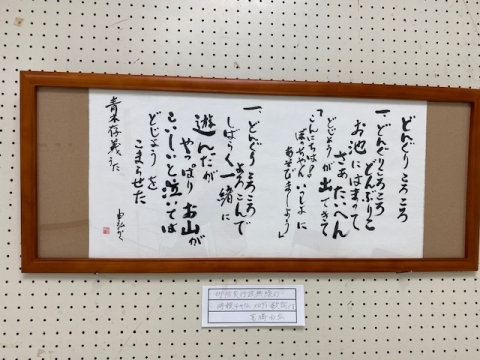 どんぐりころころ
一、どんぐりころころ
どんぶりこ
お池にはまって
さあたいへん
どじょうが出てきて
「こんにちは
ぼっちゃんいっしょに
あそびましょう」
一、どんぐりころころ
よろこんで
しばらく一緒に
遊んだが
やっぱりお山が
こいしいと泣いては
どじょうを
こまらせた
青木存義うた